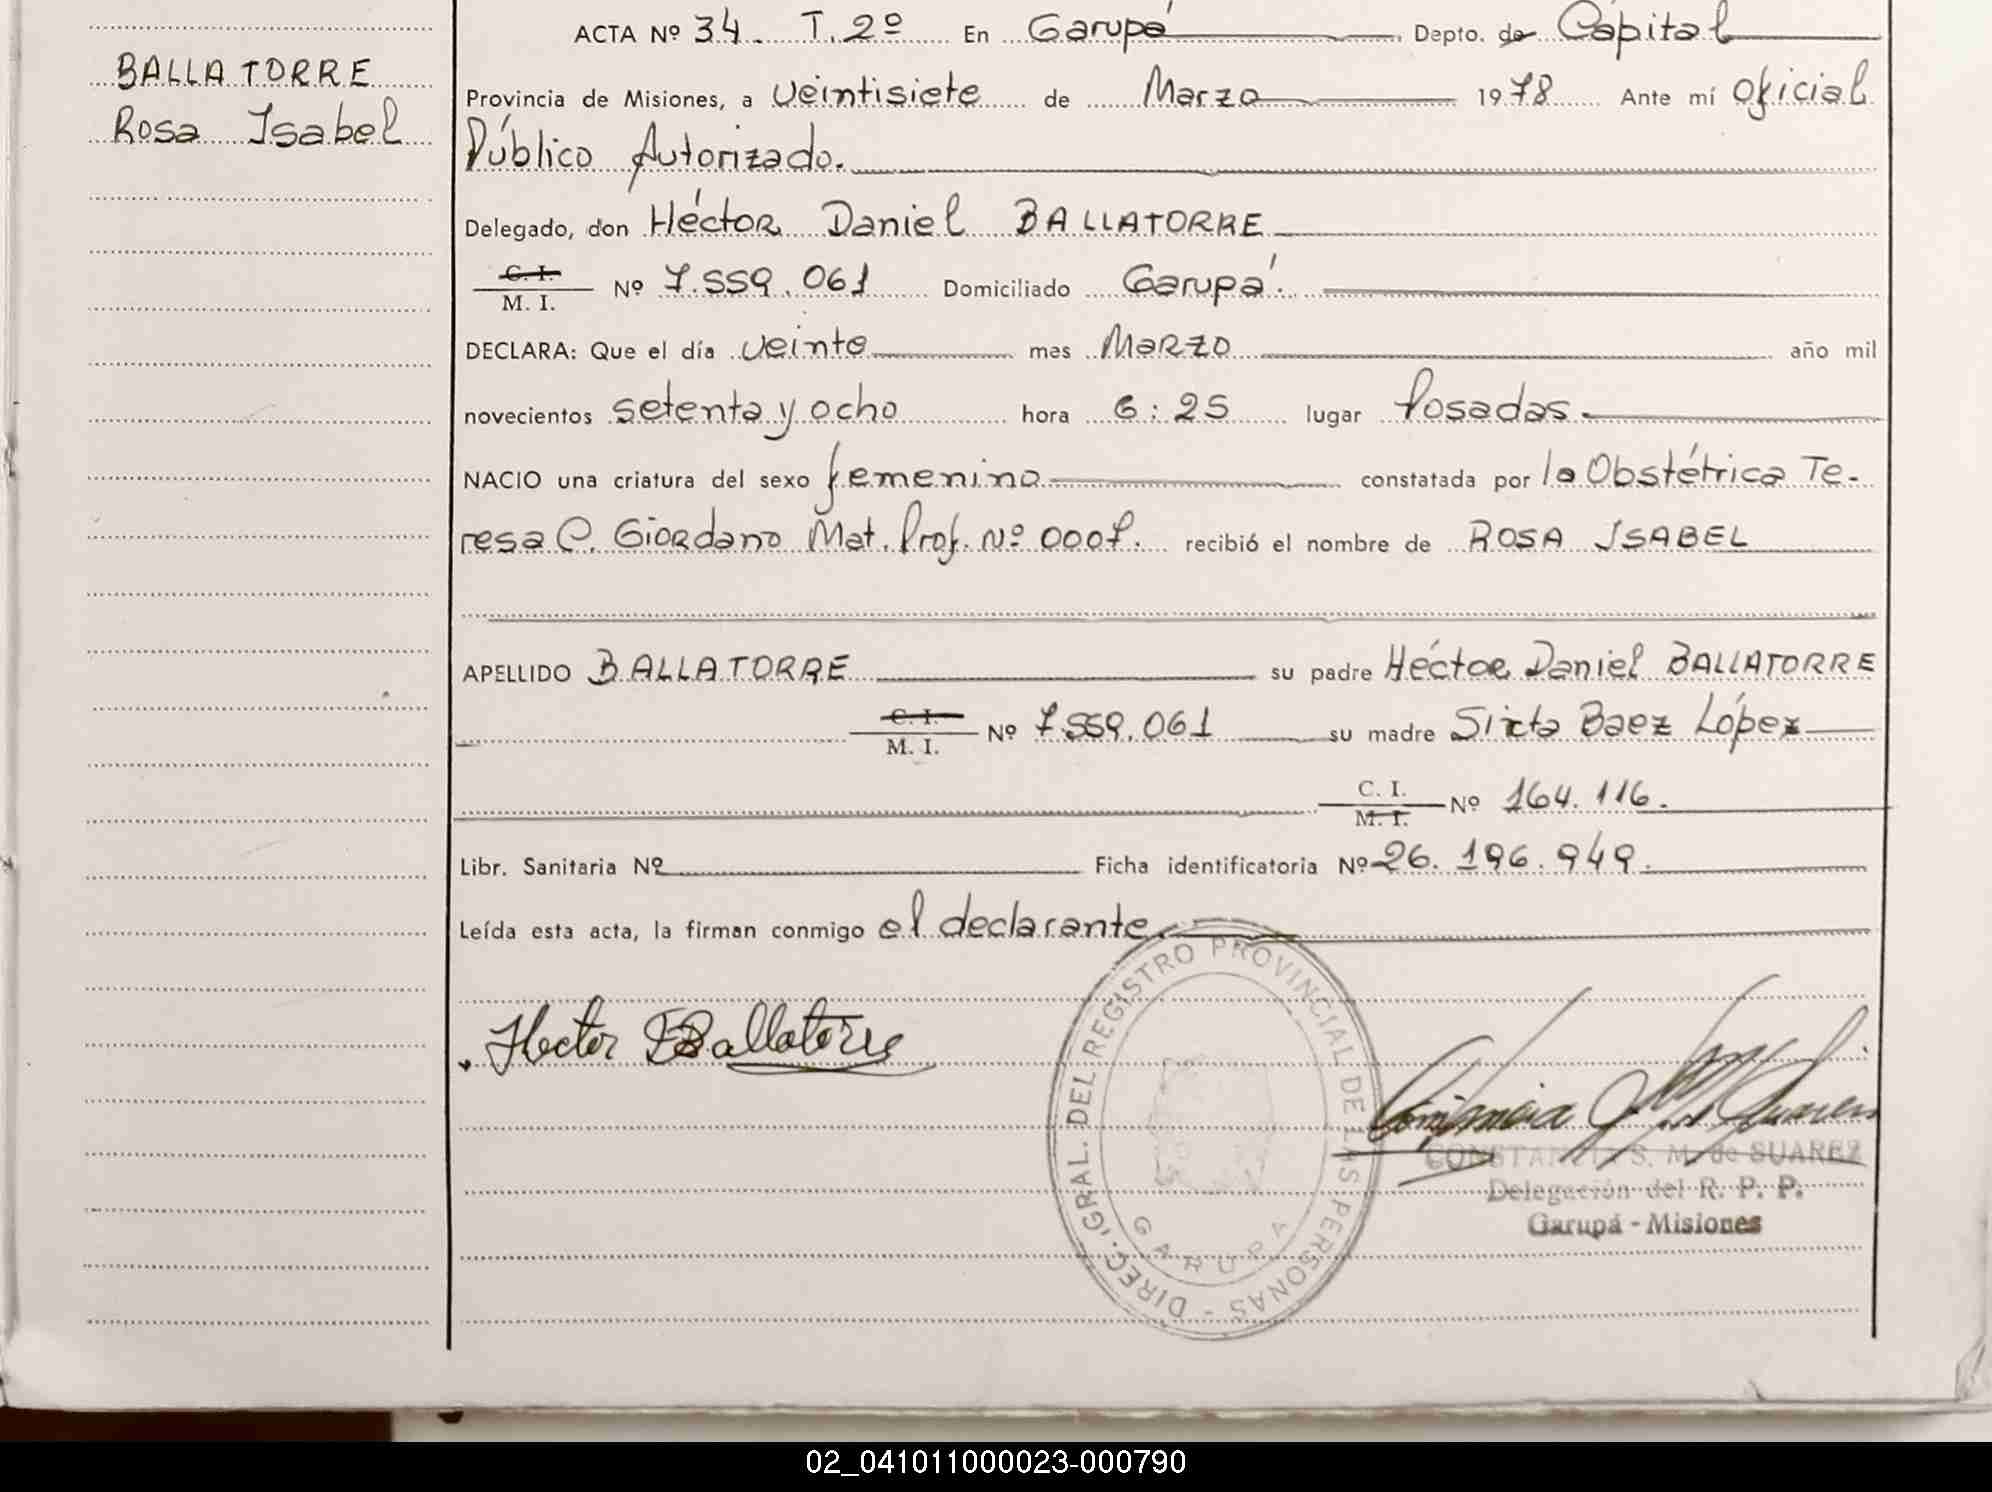 BALLATORRE
Rosa Isabel
ACTA Nº 34. T. 2º En Garupá Depto. de Capital
Provincia de Misiones, a veintisiete de Marzo 1978 Ante mí Oficial
Público Autorizado.
Delegado, don Héctor Daniel BALLATORRE
C. I.
M. I. Nº 7.559.061 Domiciliado Garupá.
DECLARA: Que el día veinte mes Marzo año mil
novecientos setenta y ocho hora 6:25 lugar Posadas.
NACIO una criatura del sexo femenino constatada por la Obstétrica Te-
resa C. Giordano Mat. Prof. Nº 0007. recibió el nombre de ROSA ISABEL
APELLIDO BALLATORRE su padre Héctor Daniel BALLATORRE
C. I.
M. I. Nº 7.559.061 su madre Sixta Baez López
C. I.
M. I. Nº 164.116.
Libr. Sanitaria Nº Ficha identificatoria Nº 26.196.949.
Leída esta acta, la firman conmigo el declarante.
Hector Ballatorre
DIREC. GRAL. DEL REGISTRO PROVINCIAL DE LAS PERSONAS -
GARUPA
CONSTANCIA S. M. de SUAREZ
Delegación del R. P. P.
Garupá - Misiones
02_041011000023-000790